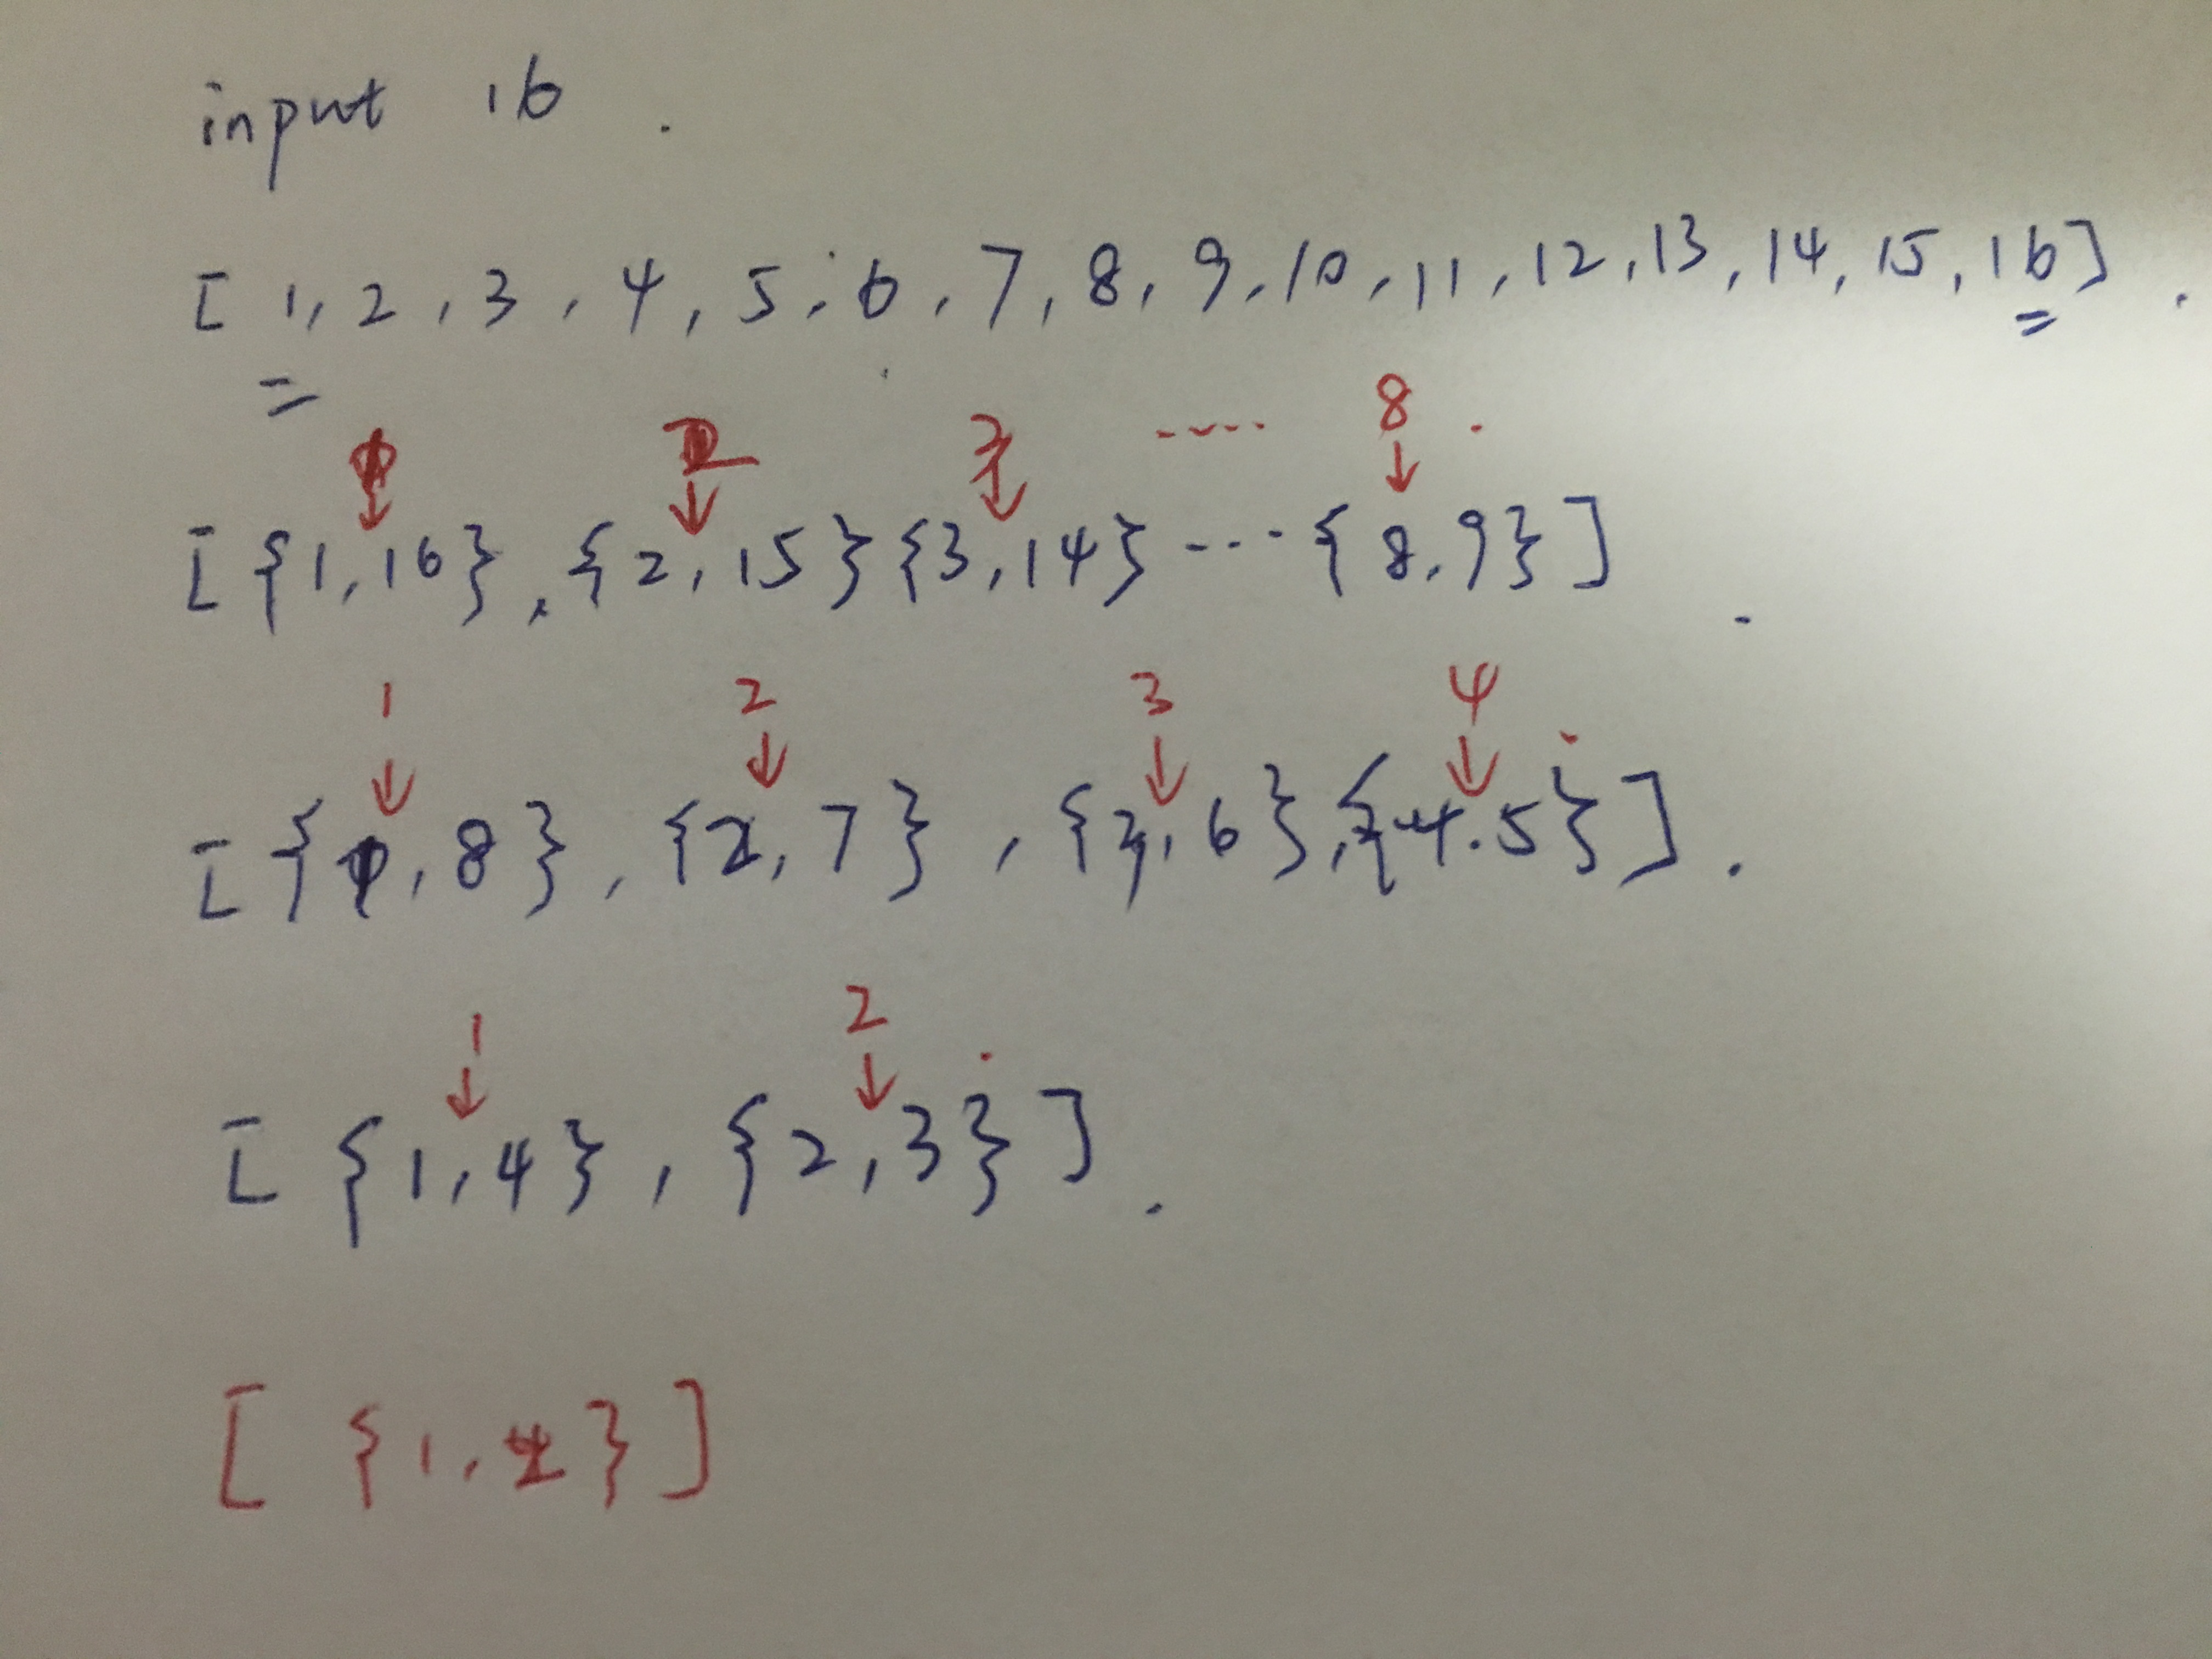 input 16
[1,2,3,4,5,6,7,8,9,10,11,12,13,14,15,16]
8
[{1,16},{2,15}{3,14}---{8,9}]
1 2 3 4
[{1,8},{2,7},{3,6},{4,5}]
1 2
[{1,4},{2,3}]
[{1,2}]